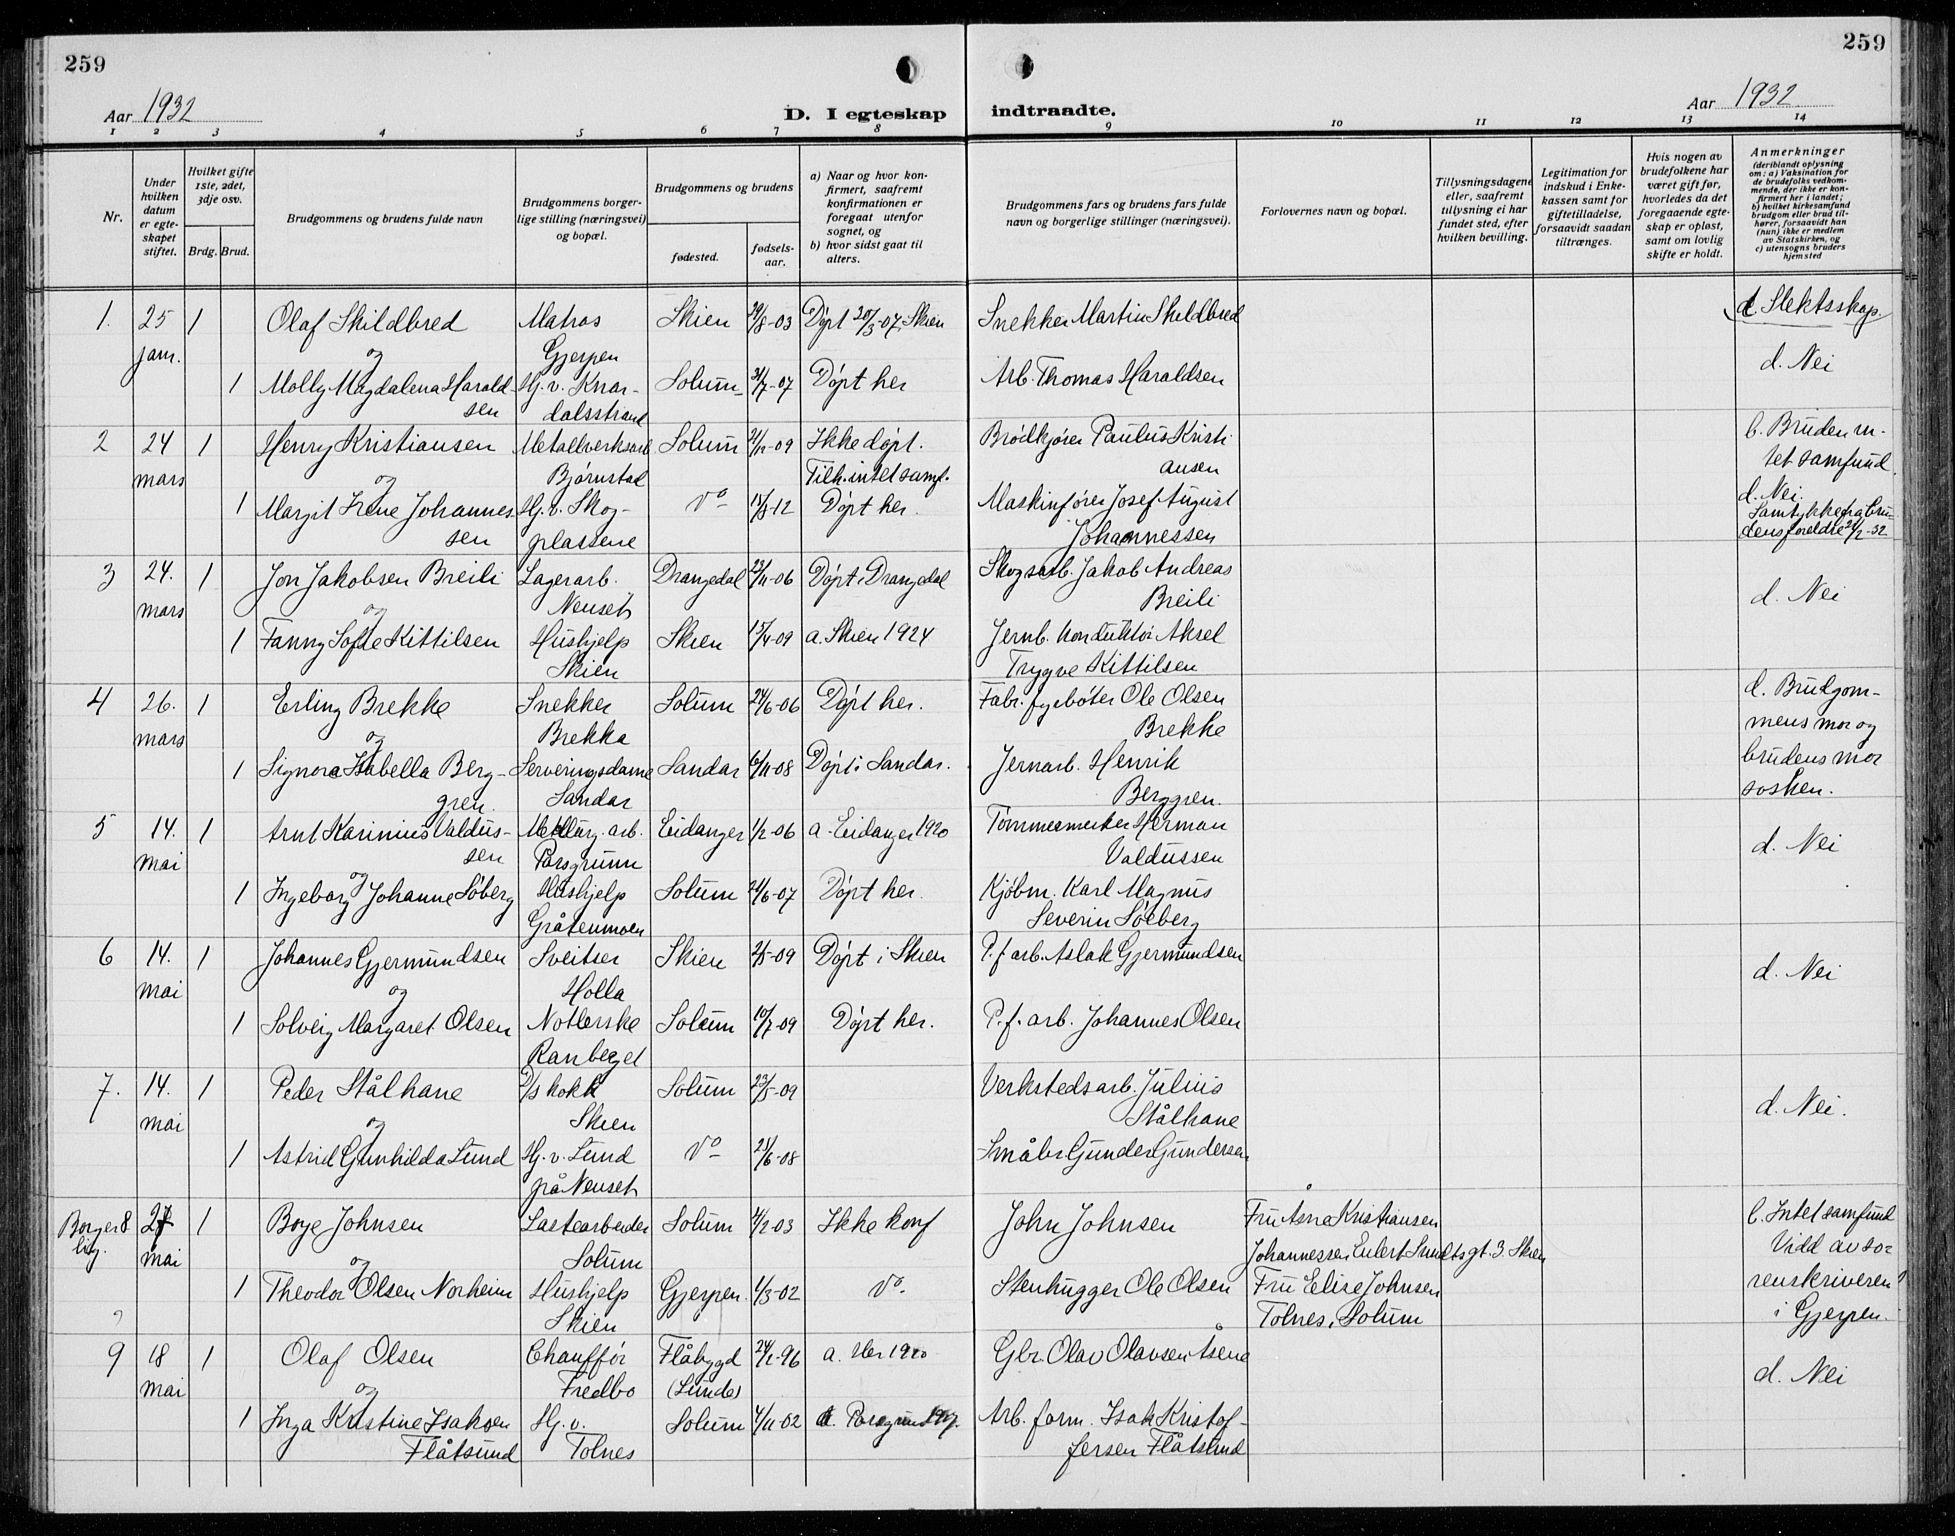 259
259
Aar 1932
D. I egteskap indtraadte.
Aar 1932
1 2 3 4 5 6 7 8 9 10 11 12 13 14
Nr.
Under hvilken datum er egteskapet stiftet.
Hvilket gifte 1ste, 2det, 3dje osv.
Brdg. Brud.
Brudgommens og brudens fulde navn
Brudgommens borgerlige stilling (næringsvei) og bopæl.
Brudgommens og brudens
fødested.
fødselsaar.
a) Naar og hvor konfirmert, saafremt konfirmationen er foregaat utenfor sognet, og
b) hvor sidst gaat til alters.
Brudgommens fars og brudens fars fulde navn og borgerlige stillinger (næringsvei).
Forlovernes navn og bopæl.
Tillysningsdagene eller, saafremt tillysning ei har fundet sted, efter hvilken bevilling.
Legitimation for indskud i Enkekassen samt for giftetilladelse, forsaavidt saadan tiltrænges.
Hvis nogen av brudefolkene har været gift før, hvorledes da det foregaaende egteskap er opløst, samt om lovlig skifte er holdt.
Anmerkninger
(deriblandt oplysning om: a) Vaksination for de brudefolks vedkommende, der ikke er konfirmert her i landet; b) hvilket kirkesamfund brudgom eller brud tilhører, forsaavidt han (hun) ikke er medlem av Statskirken, og c) utensogns bruders hjemsted
1. 25 jan. 1 Olaf Skildbred Matros Gjerpen Skien 29/8-03 Døpt 20/3-07, Skien Snekker Martin Skildbred d. Slektsskap.
og
1 Molly Magdalena Haraldsen Hj. v. Knardalsstrand Solum 31/7-07 Døpt her Arb. Thomas Haraldsen d. Nei
2 24 mars 1 Henry Kristiansen Metallverksarb Bjørnstad Solum 21/12-09 Ikke døpt. Tilh. intet samf. Brødkjører Paulus Kristiansen b. Bruden intet samfund.
og
1 Margit Irene Johannessen Hj. v. Skogplassene Do 15/3-12 Døpt her. Maskinfører Josef August Johannessen d. Nei. Samtykke fra brudens foreldre 21/2-32
3 24. mars 1 Jon Jakobsen Breili Lagerarb. Nenset Drangedal 23/11-06 Døpt i Drangedal Skogsarb. Jakob Andreas Breili d. Nei
og
1 Fanny Sofie Kittilsen Hushjelp Skien Skien 15/4-09 a. Skien 1924 Jernb. konduktør Aksel Trygve Kittilsen
4 26. mars 1 Erling Brekke Snekker Brekka Solum 24/6-06 Døpt her. Fabr. fyrbøter Ole Olsen Brekke d. Brudgommens mor og brudens mor søsken.
og
1 Signora Isabella Berggren. Serveringsdame Sandar Sandar 6/11-08 Døpt i Sandar. Jernarb. Henrik Berggren.
5 14. mai 1 Arnt Karinius Valdussen Metallurg. arb. Porsgrunn Eidanger 1/2-06 a. Eidanger 1920 Tømmermerker Herman Valdussen d. Nei
og
1 Ingeborg Johanne Søberg Hushjelp Gråtenmoen Solum 24/6-07 Døpt her. Kjøbm. Karl Magnus Severin Søeberg
6 14. mai 1 Johannes Gjermundsen Sveitser Holla Skien 2/5-09 Døpt i Skien P.f. arb. Aslak Gjermundsen d. Nei
og
1 Solveig Margaret Olsen Notlerske Ranberget Solum 10/7-09 Døpt her. P.f. arb. Johannes Olsen
7. 14. mai 1 Peder Stålhane D/s kokk Skien Solum 23/5-09 Verkstedsarb. Julius Stålhane d. Nei.
og
1 Astrid Gunhilda Lund Hj. v. Lund på Nenset Do 21/6-08 Småbr Gunder Gundersen
Borgerlig. 8 27 mai 1 Boye Johnsen Lastearbeider Solum Solum 4/2-03 Ikke konf John Johnsen Fru Asne Kristiansen Johannessen Eilert Sundts gt. 3. Skien b. Intet samfund Vidd av sorenskriveren i Gjerpen.
og
1 Theodor Olsen Norheim Hushjelp Skien Gjerpen. 1/3-02 Do. Stenhugger Ole Olsen Fru Elise Johnsen Tolnes, Solum
9 18 mai 1 Olaf Olsen Chauffør Fredbo Flåbygd (Lunde) 24/2-96 a. Her 1920 Gbr. Olav Olavsen Åsene d. Nei
og
1 Inga Kristine Isaksen Flåtsund Hj. v. Tolnes Solum 4/11-02 a. Porsgrund Arb. form. Isak Kristoffersen Flåtsund